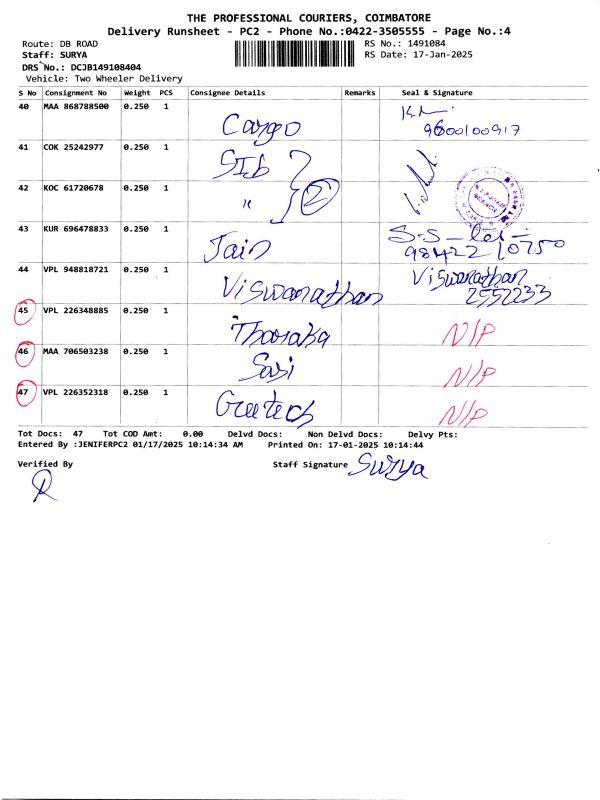 THE PROFESSIONAL COURIERS, COIMBATORE
Delivery Runsheet - PC2 - Phone No.:0422-3505555 - Page No.:4
Route: DB ROAD RS No.: 1491084
Staff: SURYA RS Date: 17-Jan-2025
DRS No.: DCJB149108404
Vehicle: Two Wheeler Delivery
S No Consignment No Weight PCS Consignee Details Remarks Seal & Signature
40 MAA 868788500 0.250 1 Cargo 9600100917
41 COK 25242977 0.250 1 SIb
42 KOC 61720678 0.250 1 " 2
43 KUR 696478833 0.250 1 Jain 98422 10750
44 VPL 948818721 0.250 1 Viswanathan Viswanathan 2552233
45 VPL 226348885 0.250 1 Tharaka N/P
46 MAA 706503238 0.250 1 Sasi N/P
47 VPL 226352318 0.250 1 Greetech N/P
Tot Docs: 47 Tot COD Amt: 0.00 Delvd Docs: Non Delvd Docs: Delvy Pts:
Entered By :JENIFERPC2 01/17/2025 10:14:34 AM Printed On: 17-01-2025 10:14:44
Verified By Staff Signature Surya